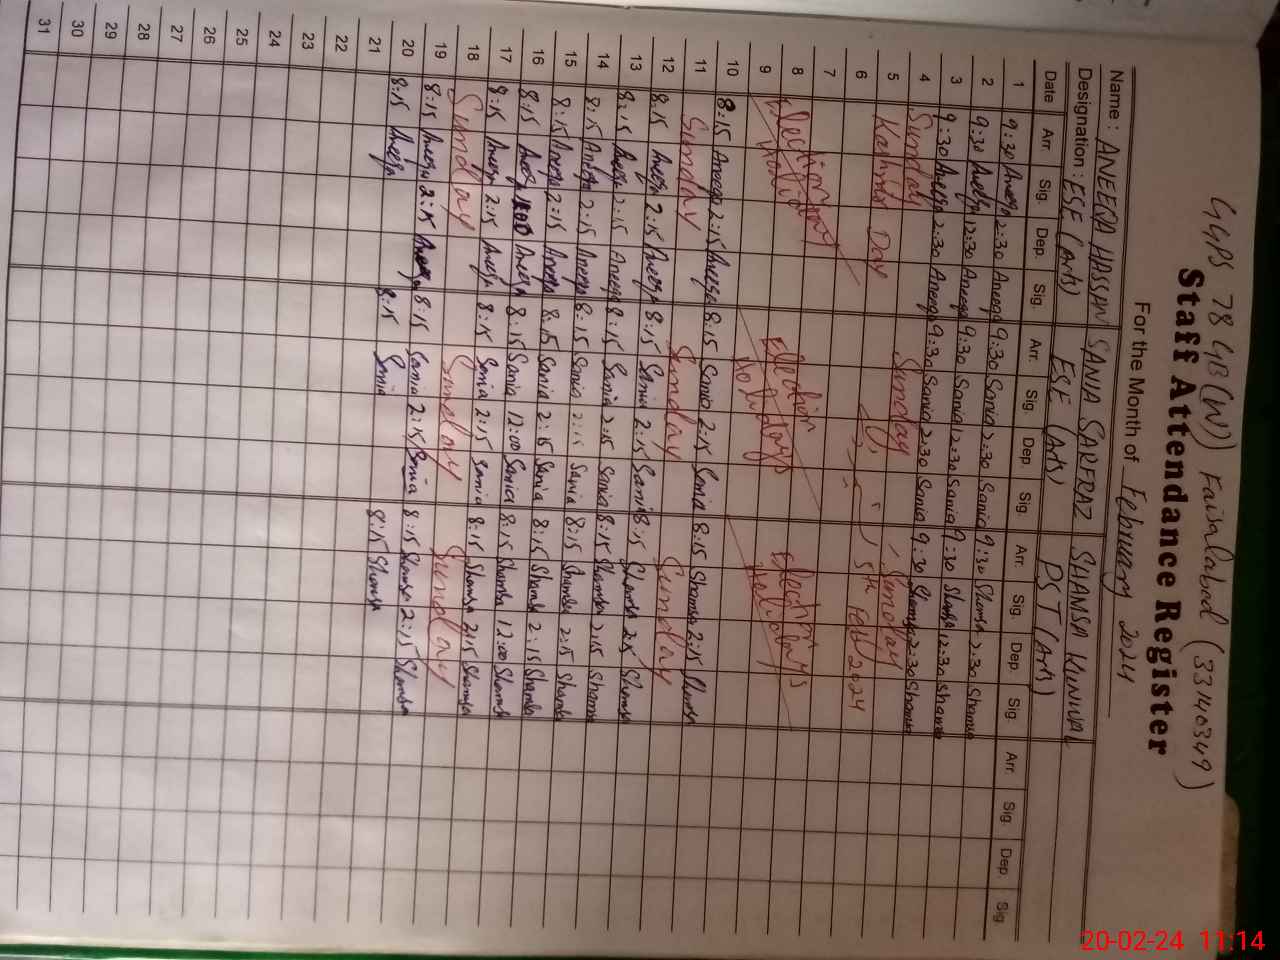 GGPS 78 GB (W) Faisalabad (33140349)
Staff Attendance Register
For the Month of February 2024
Name : ANEEQA HASSAN SANIA SARFRAZ SHAMSA KUNWAL
Designation : ESE (Arts) ESE (Arts) PST (Arts)
Date Arr. Sig. Dep. Sig. Arr. Sig. Dep. Sig. Arr. Sig. Dep. Sig. Arr. Sig. Dep. Sig.
1 9:30 Aneeqa 2:30 Aneeqa 9:30 Sania 2:30 Sania 9:30 Shamsa 2:30 Shamsa
2 9:30 Aneeqa 12:30 Aneeqa 9:30 Sania 12:30 Sania 9:30 Shamsa 12:30 Shamsa
3 9:30 Aneeqa 2:30 Aneeqa 9:30 Sania 2:30 Sania 9:30 Shamsa 2:30 Shamsa
4 Sunday Sunday Sunday
5 Kashmir Day 5th Feb 2024
6
7
8 Election Holidays Election Holidays
9
10 8:15 Aneeqa 2:15 Aneeqa 8:15 Sania 2:15 Sania 8:15 Shamsa 2:15 Shamsa
11 Sunday Sunday Sunday
12 8:15 Aneeqa 2:15 Aneeqa 8:15 Sania 2:15 Sania 8:15 Shamsa 2:15 Shamsa
13 8:15 Aneeqa 2:15 Aneeqa 8:15 Sania 2:15 Sania 8:15 Shamsa 2:15 Shamsa
14 8:15 Aneeqa 2:15 Aneeqa 8:15 Sania 2:15 Sania 8:15 Shamsa 2:15 Shamsa
15 8:15 Aneeqa 2:15 Aneeqa 8:15 Sania 2:15 Sania 8:15 Shamsa 2:15 Shamsa
16 8:15 Aneeqa Aneeqa 8:15 Sania 12:00 Sania 8:15 Shamsa 12:00 Shamsa
17 8:15 Aneeqa 2:15 Aneeqa 8:15 Sania 2:15 Sania 8:15 Shamsa 2:15 Shamsa
18 Sunday Sunday Sunday
19 8:15 Aneeqa 2:15 Aneeqa 8:15 Sania 2:15 Sania 8:15 Shamsa 2:15 Shamsa
20 8:15 Aneeqa 8:15 Sania 8:15 Shamsa
21
22
23
24
25
26
27
28
29
30
31
20-02-24 11:14